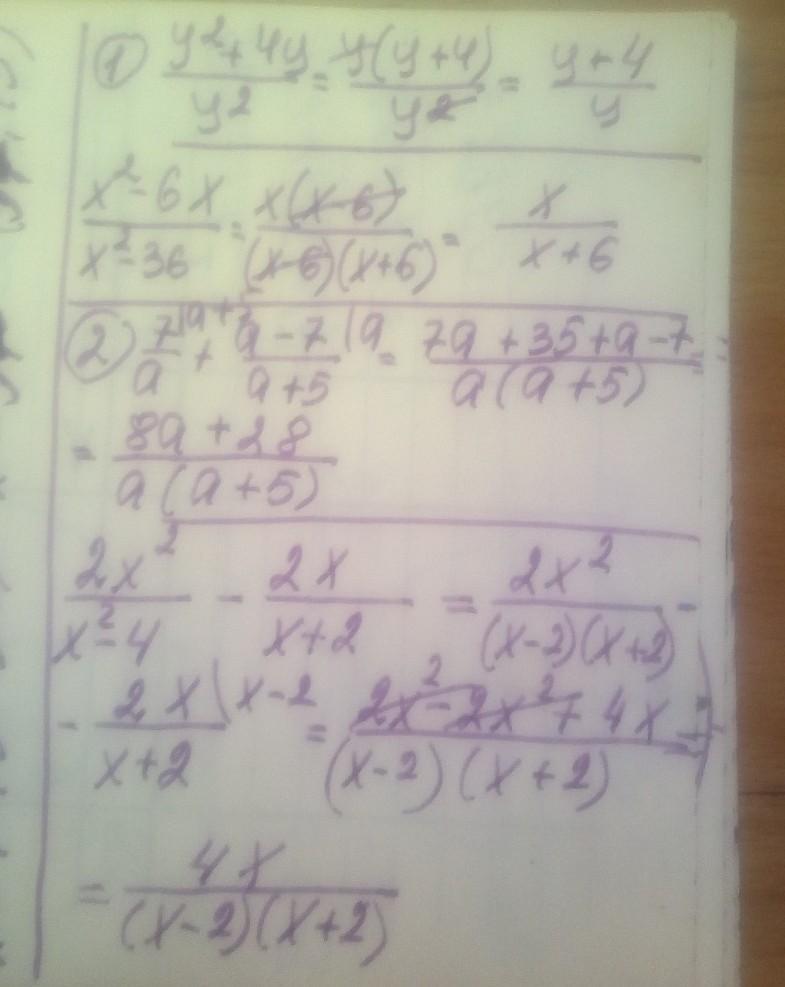 ① (y²+4y)/y² = y(y+4)/y² = (y+4)/y
(x²-6x)/(x²-36) = x(x-6)/((x-6)(x+6)) = x/(x+6)
② 7/a |a+5 + (a-7)/(a+5) |a = (7a+35+a-7)/(a(a+5)) =
= (8a+28)/(a(a+5))
2x²/(x²-4) - 2x/(x+2) = 2x²/((x-2)(x+2)) -
- 2x/(x+2) \x-2 = (2x²-2x²+4x)/((x-2)(x+2)) =
= 4x/((x-2)(x+2))